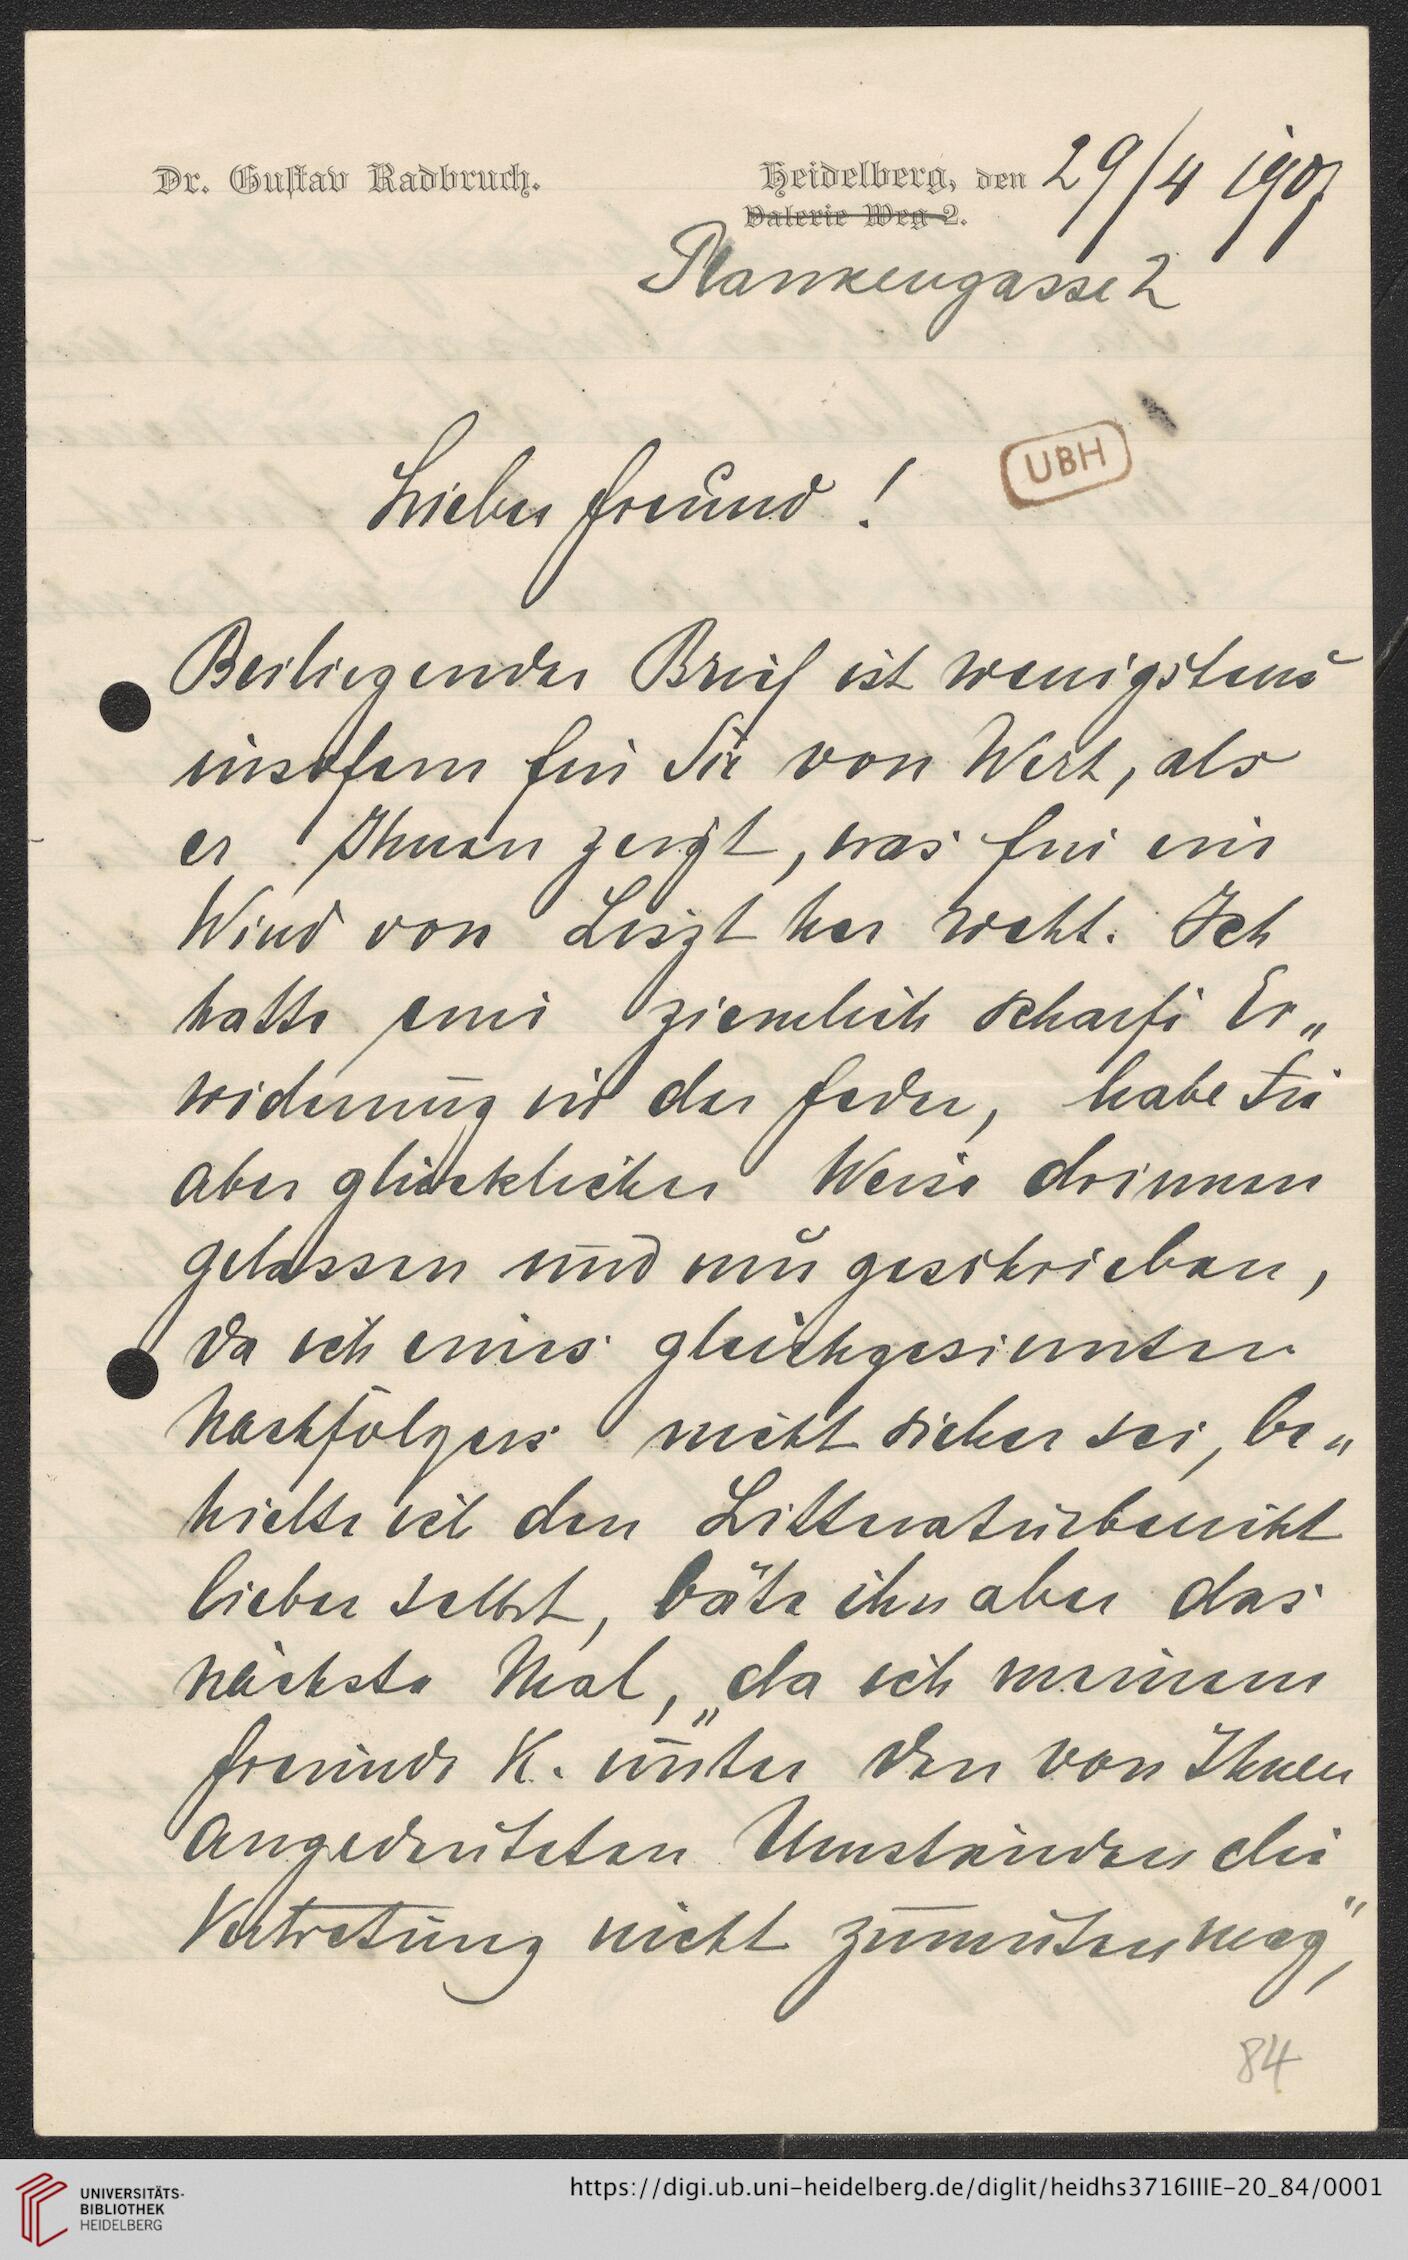 Dr. Gustav Radbruch.
Heidelberg, den 29/4 1907
Valerie Weg 2.
Plankengasse 2
UBH
Lieber Freund!
Beiliegender Brief ist wenigstens
insofern für Sie von Wert, als
er Ihnen zeigt, was für ein
Wind von Liszt her weht. Ich
hatte eine ziemlich scharfe Er„
widerung in der Feder, habe sie
aber glücklicher Weise drinnen
gelassen und nur geschrieben,
da ich eines gleichgesinnten
Nachfolgers nicht sicher sei, be„
hielte ich den Litteraturbericht
lieber selbst, bäte ihn aber das
nächste Mal, „da ich meinem
Freunde K. unter den von Ihnen
angedeuteten Umständen die
Vertretung nicht zumuten mag“,
84
UNIVERSITÄTS-
BIBLIOTHEK
HEIDELBERG
https://digi.ub.uni-heidelberg.de/diglit/heidhs3716IIIE-20_84/0001